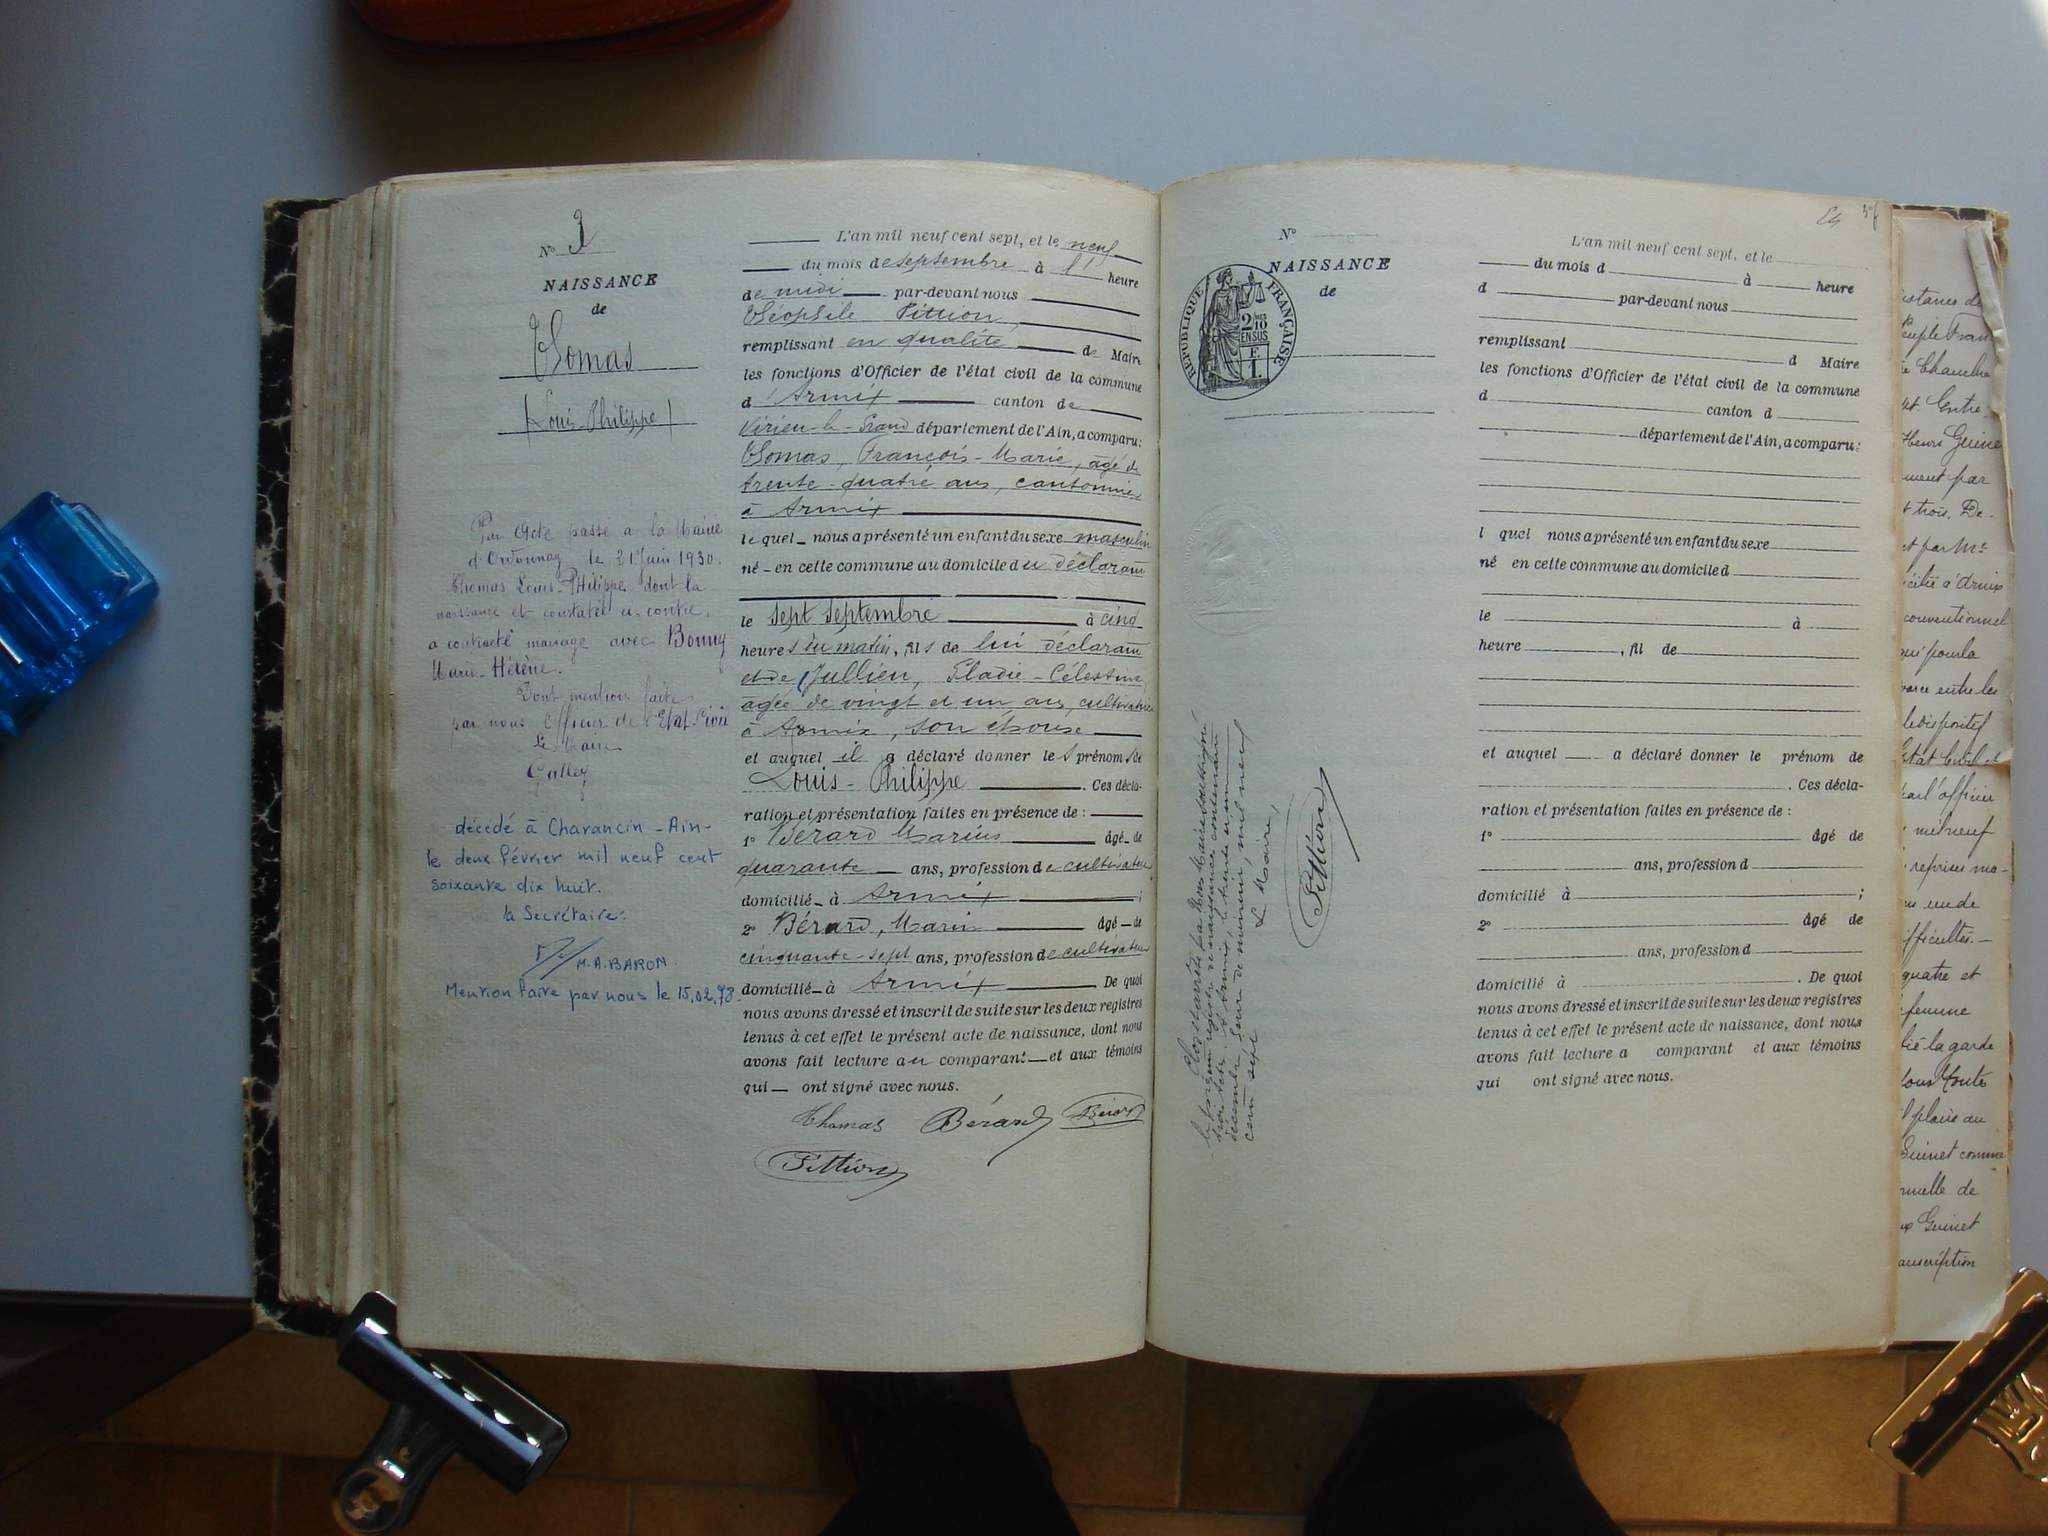 N° 3
NAISSANCE
de
Thomas
(Louis-Philippe)
Par Acte passé à la Mairie
d'Ordonnaz le 21 Juin 1930.
Thomas Louis-Philippe dont la
naissance est constatée ci-contre,
a contracté mariage avec Bonny
Marie-Hélène.
Dont mention faite
par nous Officier de l'Etat-Civil
Le Maire
Galley
décédé à Chavancin -Ain-
le deux février mil neuf cent
soixante dix huit.
la Secrétaire:
M.A.BARON.
Mention faite par nous le 15.02.78.
L'an mil neuf cent sept, et le neuf
du mois de septembre à l' heure
de midi par-devant nous
Théophile Pittion
remplissant en qualité de Maire
les fonctions d'Officier de l'état civil de la commune
d'Armix canton de
Virieu-le-Grand département de l'Ain, a comparu:
Thomas, François-Marie, âgé de
trente-quatre ans, cantonnier
à Armix
lequel nous a présenté un enfant du sexe masculin
né en cette commune au domicile du déclarant
le sept septembre à cinq
heures du matin, fils de lui déclarant
et de Jullien, Eladie-Célestine
âgée de vingt et un ans, cultivatrice
à Armix, son épouse
et auquel il a déclaré donner les prénoms de
Louis-Philippe. Ces décla-
ration et présentation faites en présence de :
1° Bérard Marius âgé de
quarante ans, profession de cultivateur
domicilié à Armix ;
2° Bérard, Marin âgé de
cinquante-sept ans, profession de cultivateur
domicilié à Armix De quoi
nous avons dressé et inscrit de suite sur les deux registres
tenus à cet effet le présent acte de naissance, dont nous
avons fait lecture au comparant et aux témoins
qui ont signé avec nous.
Thomas Bérard Bérard
Pittion
N°
NAISSANCE
de
RÉPUBLIQUE FRANÇAISE
2/10
EN SUS
F.
1.
Le Maire,
Pittion
54
L'an mil neuf cent sept, et le
du mois d à heure
d par-devant nous
remplissant d Maire
les fonctions d'Officier de l'état civil de la commune
d canton d
département de l'Ain, a comparu:
l quel nous a présenté un enfant du sexe
né en cette commune au domicile d
le à
heure , fil de
et auquel a déclaré donner le prénom de
. Ces décla-
ration et présentation faites en présence de :
1° âgé de
ans, profession d
domicilié à ;
2° âgé de
ans, profession d
domicilié à . De quoi
nous avons dressé et inscrit de suite sur les deux registres
tenus à cet effet le présent acte de naissance, dont nous
avons fait lecture a comparant et aux témoins
qui ont signé avec nous.
Peuple Fran
Entre
Henri Guine
ement par
t trois. De-
et par Me
conventionnel
qui pourla
vorce entre les
Etat Civil
par l'officier
mil neuf
reprises ma-
difficultés.-
quatre et
femme
la garde
plaira au
Guinet comme
nuelle de
ux Guinet
anscription